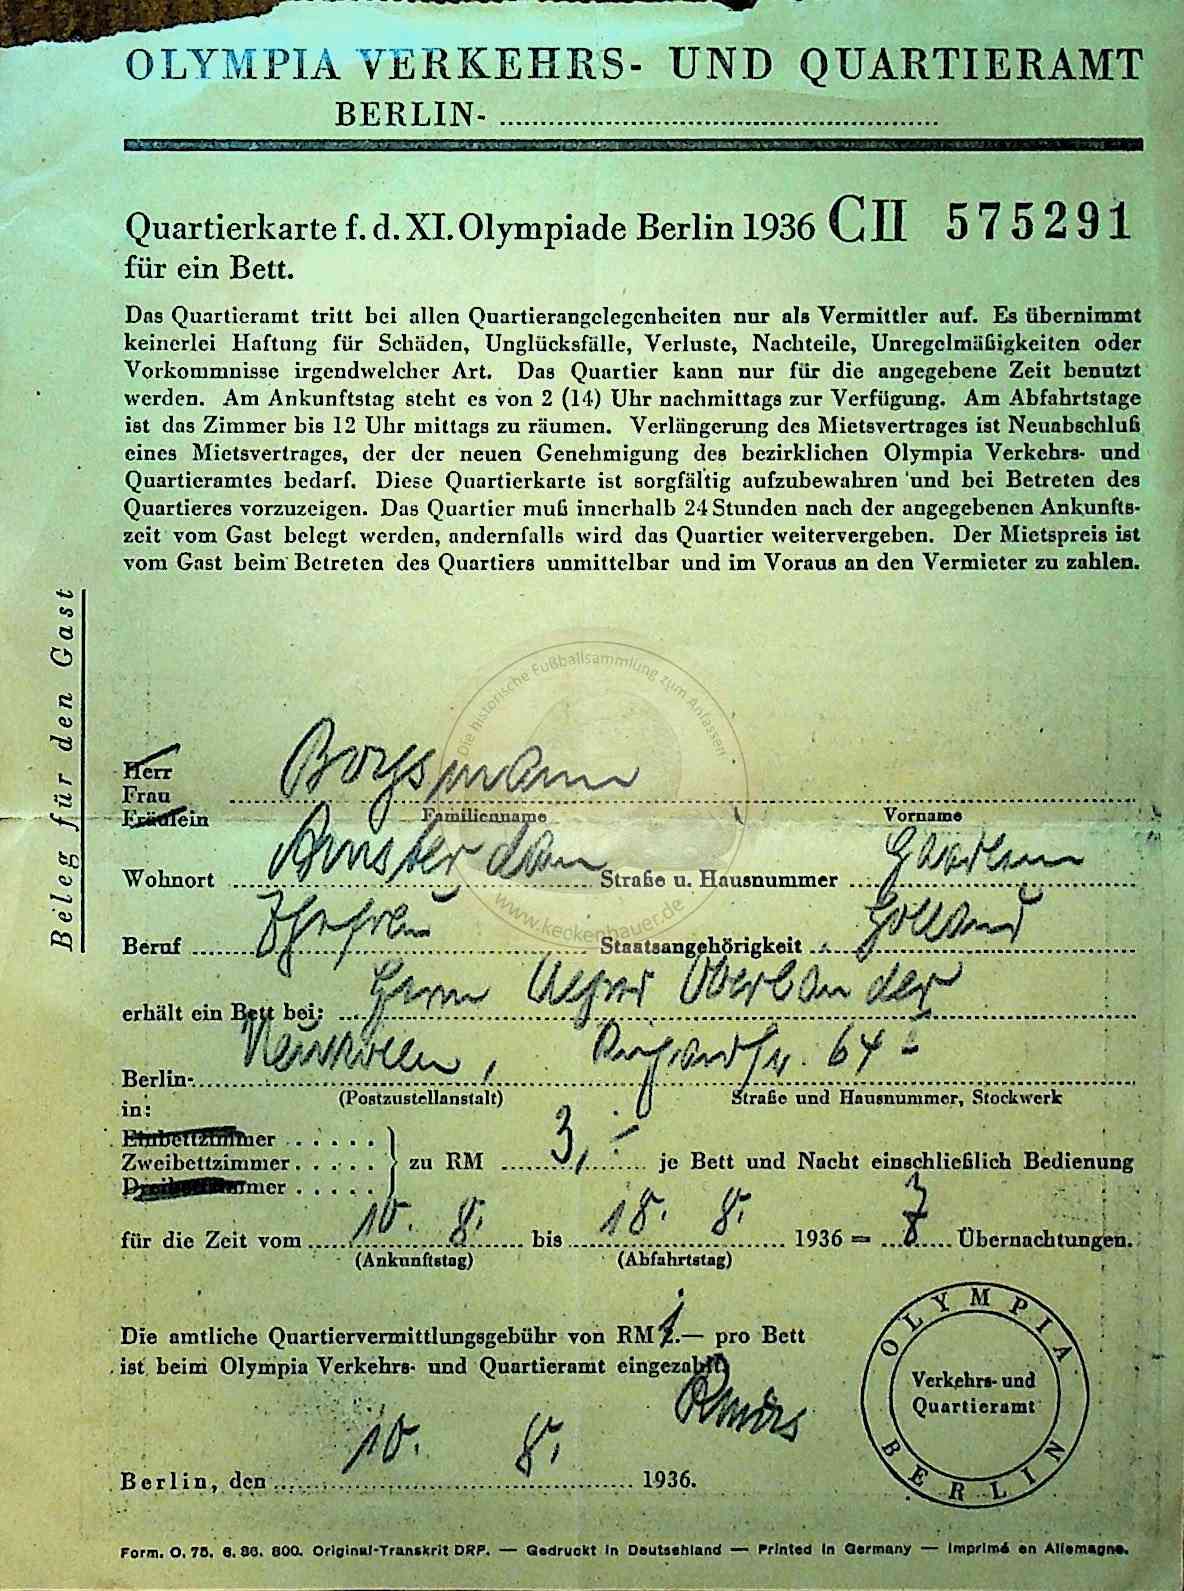 OLYMPIA VERKEHRS- UND QUARTIERAMT
BERLIN-
Quartierkarte f. d. XI. Olympiade Berlin 1936 CII 575291
für ein Bett.
Das Quartieramt tritt bei allen Quartierangelegenheiten nur als Vermittler auf. Es übernimmt
keinerlei Haftung für Schäden, Unglücksfälle, Verluste, Nachteile, Unregelmäßigkeiten oder
Vorkommnisse irgendwelcher Art. Das Quartier kann nur für die angegebene Zeit benutzt
werden. Am Ankunftstag steht es von 2 (14) Uhr nachmittags zur Verfügung. Am Abfahrtstage
ist das Zimmer bis 12 Uhr mittags zu räumen. Verlängerung des Mietsvertrages ist Neuabschluß
eines Mietsvertrages, der der neuen Genehmigung des bezirklichen Olympia Verkehrs- und
Quartieramtes bedarf. Diese Quartierkarte ist sorgfältig aufzubewahren und bei Betreten des
Quartieres vorzuzeigen. Das Quartier muß innerhalb 24 Stunden nach der angegebenen Ankunfts-
zeit vom Gast belegt werden, andernfalls wird das Quartier weitervergeben. Der Mietspreis ist
vom Gast beim Betreten des Quartiers unmittelbar und im Voraus an den Vermieter zu zahlen.
Beleg für den Gast
Die historische Fußballsammlung zum Anfassen
www.keckenbauer.de
Herr
Frau
Fräulein
Familienname
Vorname
Wohnort Amsterdam Straße u. Hausnummer
Beruf Ehefrau Staatsangehörigkeit Holland
erhält ein Bett bei: Herrn Oberländer
Berlin- Neukölln, 64
(Postzustellanstalt) Straße und Hausnummer, Stockwerk
in:
Einbettzimmer . . . . .
Zweibettzimmer . . . . . zu RM 3,- je Bett und Nacht einschließlich Bedienung
Dreibettzimmer . . . . .
für die Zeit vom 10. 8. bis 18. 8. 1936 = 8 Übernachtungen.
(Ankunftstag) (Abfahrtstag)
Die amtliche Quartiervermittlungsgebühr von RM 1.— pro Bett
ist beim Olympia Verkehrs- und Quartieramt eingezahlt
OLYMPIA
Verkehrs- und
Quartieramt
BERLIN
Berlin, den 10. 8. 1936.
Form. O. 75. 6. 36. 800. Original-Transkrit DRP. — Gedruckt in Deutschland — Printed in Germany — Imprimé en Allemagne.